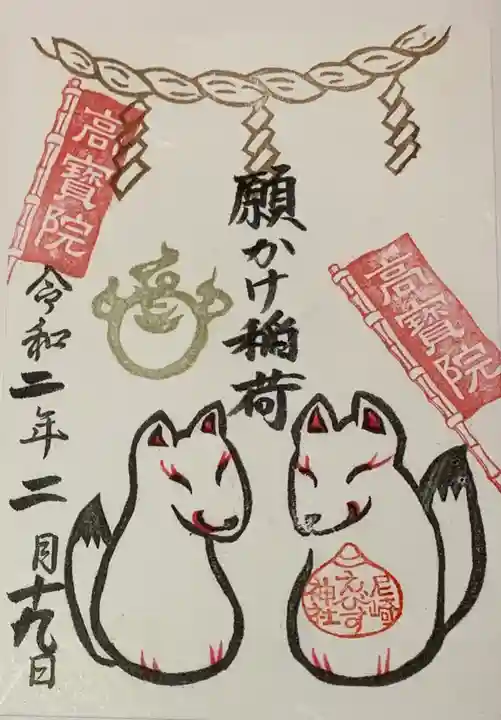 高寳院
願かけ稲荷
高寳院
尼崎
えびす
神社
令和二年二月十九日